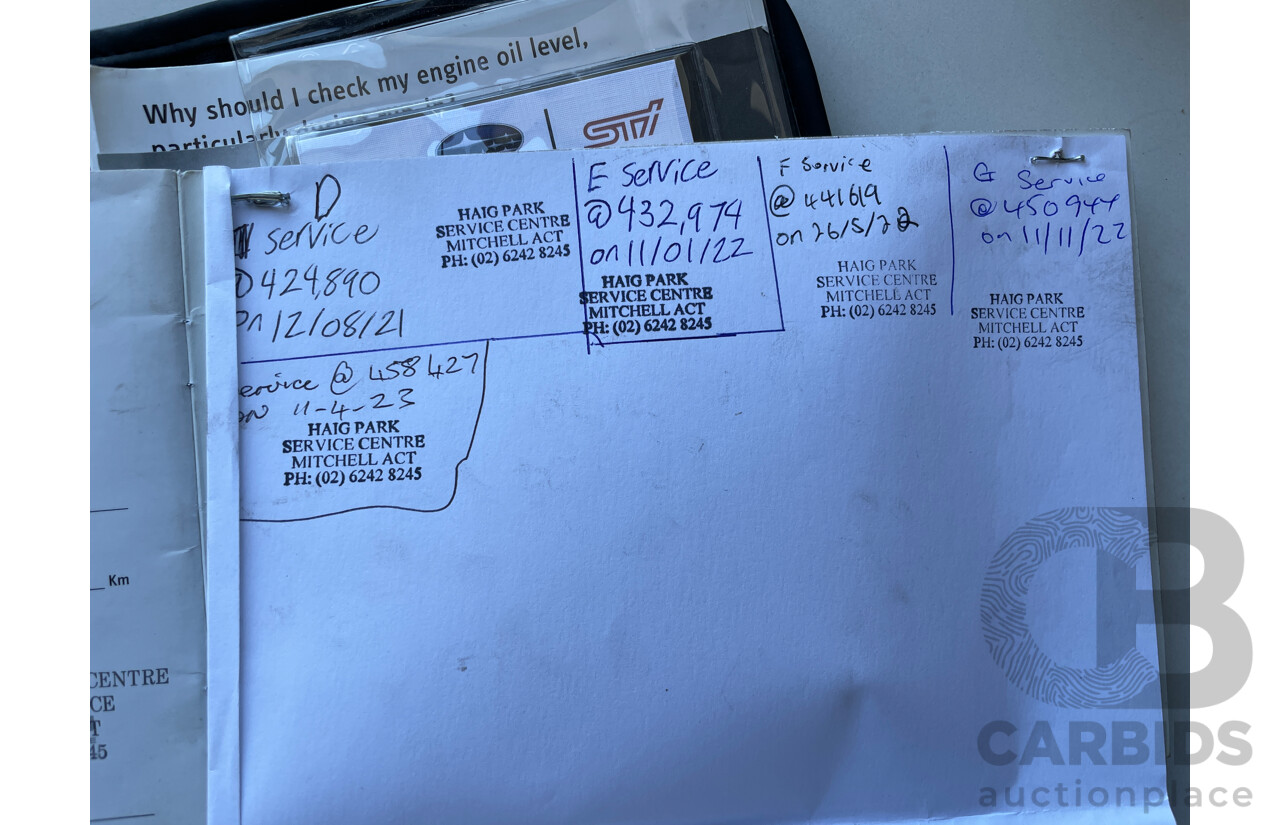 Why should I check my engine oil level,
STI
D
service
@424,890
on 12/08/21
HAIG PARK
SERVICE CENTRE
MITCHELL ACT
PH: (02) 6242 8245
E service
@432,974
on 11/01/22
HAIG PARK
SERVICE CENTRE
MITCHELL ACT
PH: (02) 6242 8245
F Service
@ 441619
on 26/5/22
HAIG PARK
SERVICE CENTRE
MITCHELL ACT
PH: (02) 6242 8245
G Service
@450944
on 11/11/22
HAIG PARK
SERVICE CENTRE
MITCHELL ACT
PH: (02) 6242 8245
ervice @ 458427
on 11-4-23
HAIG PARK
SERVICE CENTRE
MITCHELL ACT
PH: (02) 6242 8245
Km
CENTRE
CE
T
45
CARBIDS
auctionplace